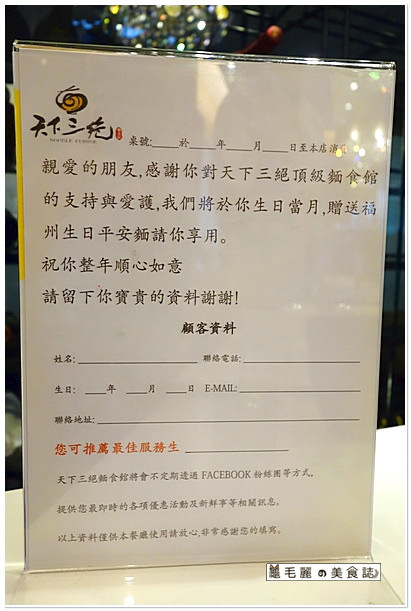 天下三絕
NOODLE CUISINE
桌號:____於____年____月____日至本店消
親愛的朋友,感謝你對天下三絕頂級麵食館
的支持與愛護,我們將於你生日當月,贈送福
州生日平安麵請你享用。
祝你整年順心如意
請留下你寶貴的資料謝謝!
顧客資料
姓名:____________ 聯絡電話:____________
生日: ____年 ____月 ____日 E-MAIL:____________
聯絡地址:____________
您可推薦最佳服務生 ____________
天下三絕麵食館將會不定期透過 FACEBOOK 粉絲團等方式,
提供您最即時的各項優惠活動及新鮮事等相關訊息。
以上資料僅供本餐廳使用請放心,非常感謝您的填寫。
毛麗の美食誌